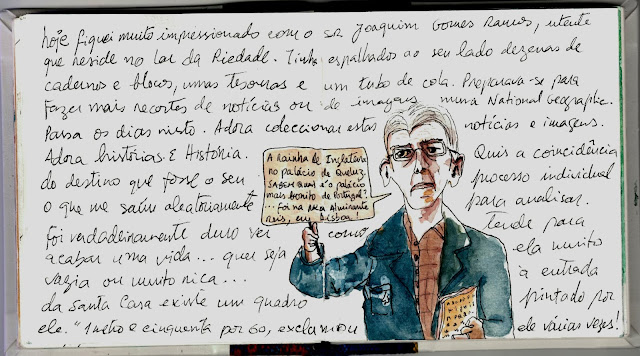 hoje fiquei muito impressionado com o sr Joaquim Gomes Ramos, utente
que reside no Lar da Piedade. Tinha espalhados ao seu lado dezenas de
cadernos e blocos, umas tesouras e um tubo de cola. Preparava-se para
fazer mais recortes de notícias ou de imagens numa National Geographic.
Passa os dias nisto. Adora coleccionar estas notícias e imagens.
Adora histórias. E História. Quis a coincidência
do destino que fosse o seu processo individual
o que me saiu aleatoriamente para analisar.
Foi verdadeiramente duro ver como tende para
acabar uma vida... quer seja ela muito
vazia ou muito rica... à entrada
da Santa Casa existe um quadro pintado por
ele. "1 metro e cinquenta por 60, exclamou ele várias vezes!
A RAINHA de INGLATERRA
no palácio de Queluz.
SABEM QUAL é o palácio
mais bonito de Portugal?
... Foi na RUA Almirante
Reis, em Lisboa!